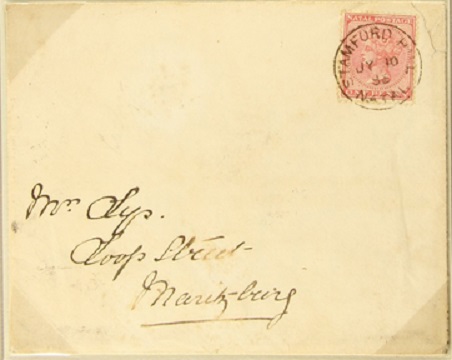 NATAL POSTAGE
STAMFORD HILL
JY 10
NATAL
Loop Street
Maritzburg